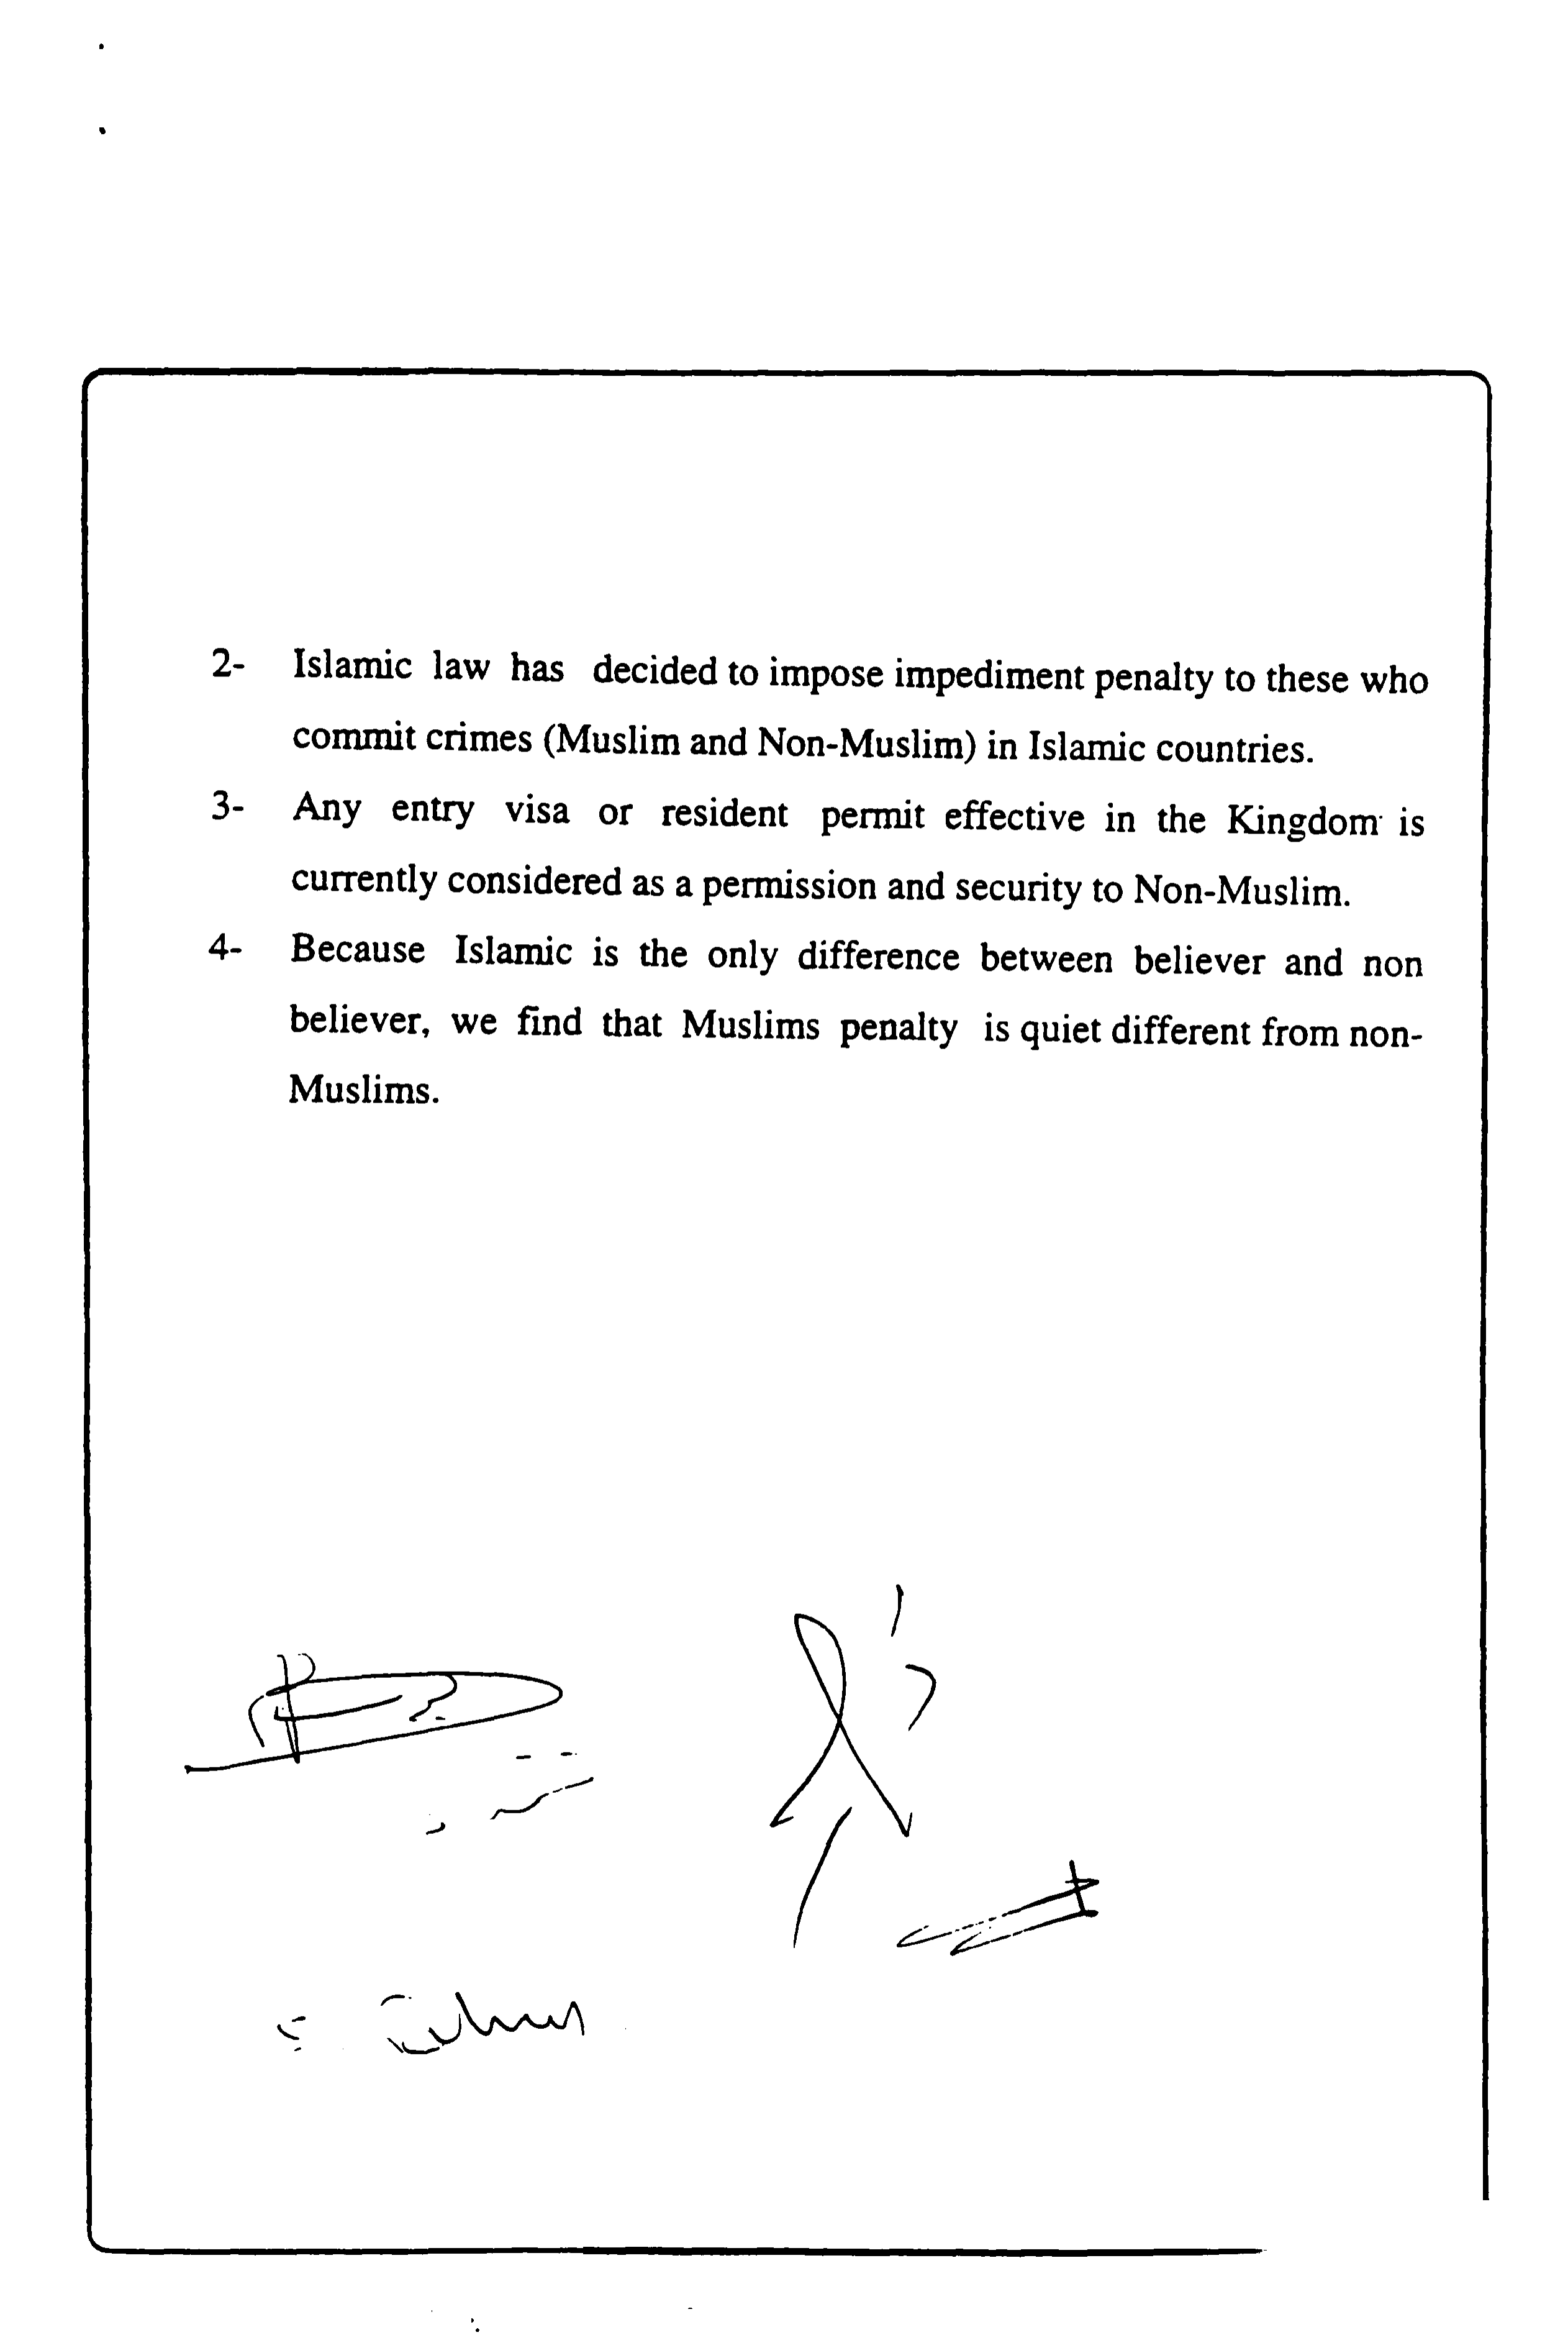 2- Islamic law has decided to impose impediment penalty to these who
commit crimes (Muslim and Non-Muslim) in Islamic countries.
3- Any entry visa or resident permit effective in the Kingdom is
currently considered as a permission and security to Non-Muslim.
4- Because Islamic is the only difference between believer and non
believer, we find that Muslims penalty is quiet different from non-
Muslims.